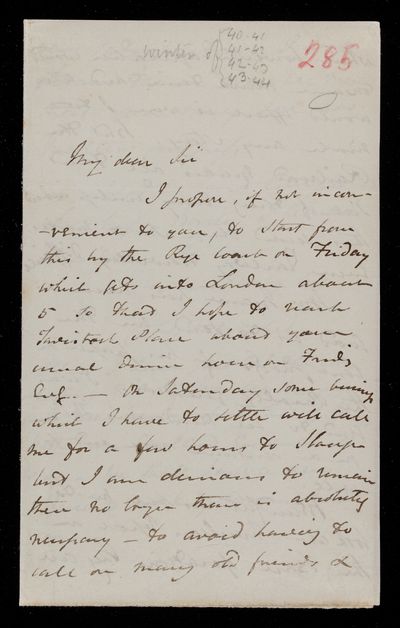 winter of { 40-41
41-42
42-43
43-44
285
My dear Sir
I propose, if not incon-
-venient to you, to start from
this by the Rye coach on Friday
which gets into London about
5 so that I hope to reach
Tavistock Place about your
usual dinner hour on Friday
Evg. — On Saturday some business
which I have to settle will call
me for a few hours to Slough
but I am desirous to remain
there no longer than is absolutely
necessary — to avoid having to
call on many old friends &